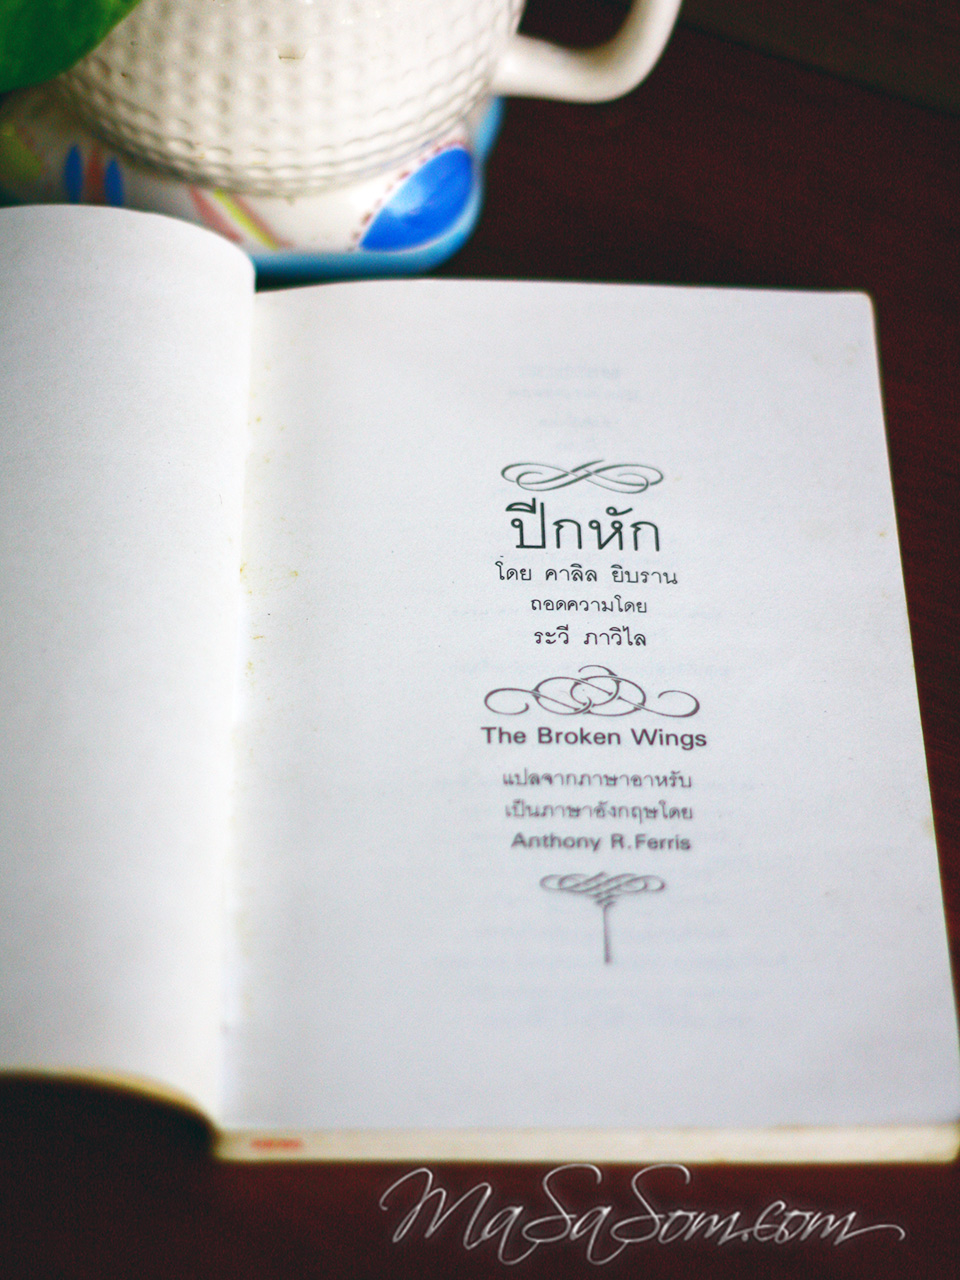 ปีกหัก
โดย คาลิล ยิบราน
ถอดความโดย
ระวี ภาวิไล
The Broken Wings
แปลจากภาษาอาหรับ
เป็นภาษาอังกฤษโดย
Anthony R. Ferris
MaSaSom.com